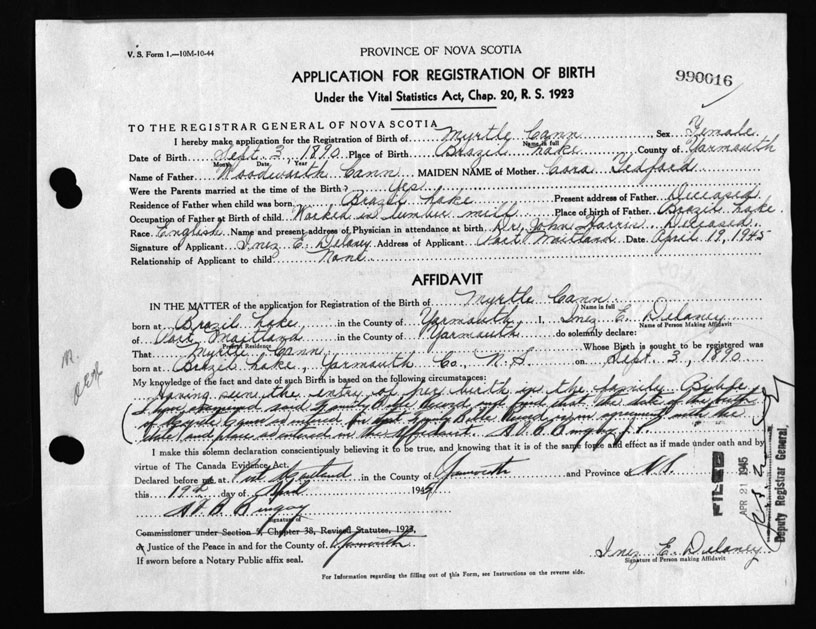 V. S. Form 1.—10M-10-44
PROVINCE OF NOVA SCOTIA
APPLICATION FOR REGISTRATION OF BIRTH
990016
Under the Vital Statistics Act, Chap. 20, R. S. 1923
TO THE REGISTRAR GENERAL OF NOVA SCOTIA
I hereby make application for the Registration of Birth of Myrtle Cann Sex Female
Name in full
Date of Birth Sept. 3, 1890 Place of Birth Brazil Lake County of Yarmouth
Month Date Year
Name of Father Woodworth Cann MAIDEN NAME of Mother Cora Tedford
Were the Parents married at the time of the Birth? Yes
Residence of Father when child was born Brazil Lake Present address of Father Deceased
Occupation of Father at Birth of child Worked in lumber mill Place of birth of Father Brazil Lake
Race English Name and present address of Physician in attendance at birth Dr. John Harris. Deceased
Signature of Applicant Inez E. Delaney Address of Applicant Port Maitland Date April 19, 1945
Relationship of Applicant to child None
AFFIDAVIT
IN THE MATTER of the application for Registration of the Birth of Myrtle Cann
Name in full
born at Brazil Lake, in the County of Yarmouth I, Inez E. Delaney
Name of Person Making Affidavit
of Port Maitland in the County of Yarmouth do solemnly declare:
Present Residence
That Myrtle Cann Whose Birth is sought to be registered was
born at Brazil Lake, Yarmouth Co., N. S. on Sept. 3, 1890
My knowledge of the fact and date of such Birth is based on the following circumstances:
Having seen the entry of her birth in the family Bible
I have examined said Family Bible Record and find that the date of the birth
of Myrtle Cann as entered in said Family Bible Record is in agreement with the
date and place as entered in this Affidavit. J.P.
I make this solemn declaration conscientiously believing it to be true, and knowing that it is of the same force and effect as if made under oath and by
virtue of The Canada Evidence Act.
Declared before me at Port Maitland in the County of Yarmouth and Province of N.S.
this 19th day of April 1945
Signature of
Commissioner under Section 3, Chapter 38, Revised Statutes, 1923,
or Justice of the Peace in and for the County of Yarmouth
If sworn before a Notary Public affix seal.
Inez E. Delaney
Signature of Person making Affidavit
For Information regarding the filling out of this Form, see Instructions on the reverse side.
FILED
APR 21 1945
Deputy Registrar General,